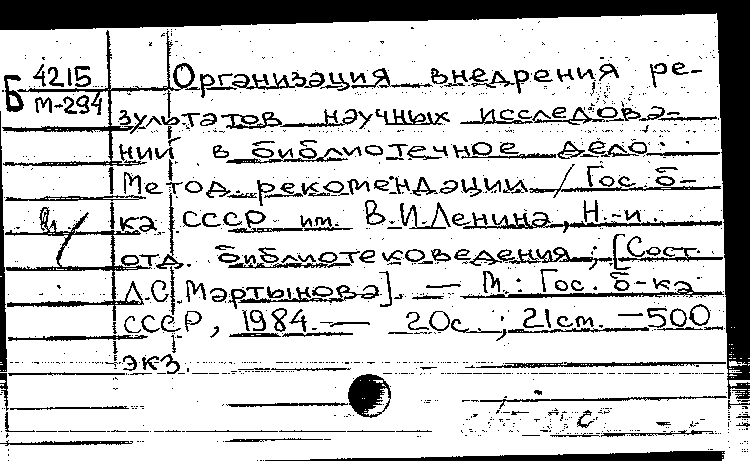 Б 4215
М-294
Организация внедрения ре-
зультатов научных исследова-
ний в библиотечное дело:
Метод. рекомендации / Гос. б-
ка СССР им. В.И.Ленина, Н.-и.
отд. библиотековедения; [Сост.
Л.С. Мартынова]. — М.: Гос. б-ка
СССР, 1984. — 20с. ; 21см. — 500
экз.